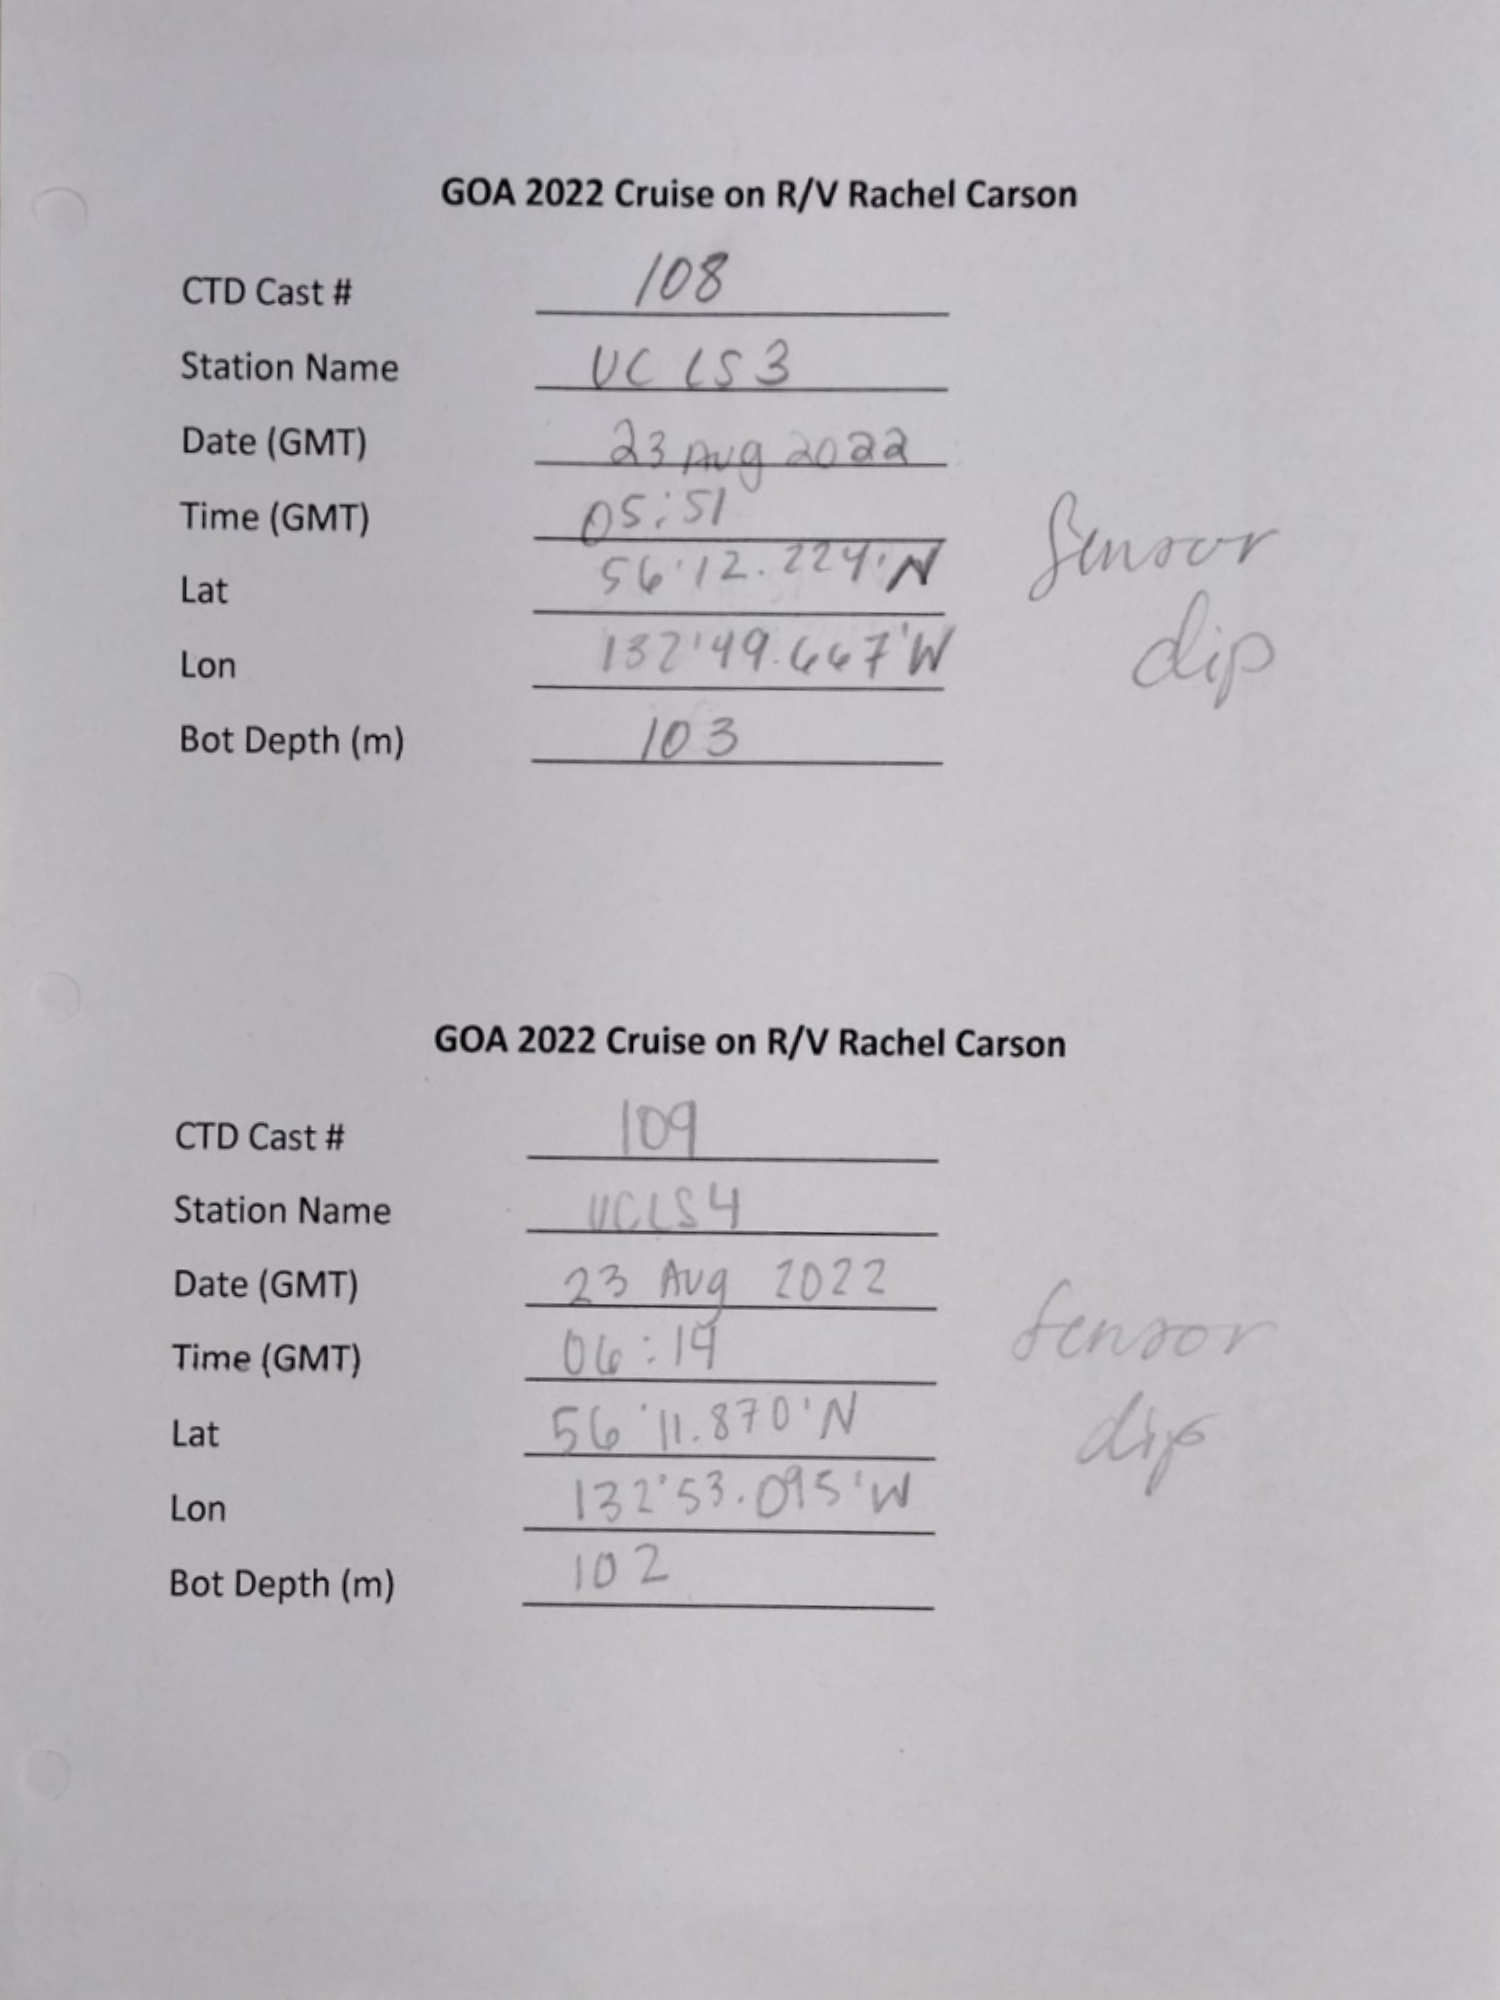 GOA 2022 Cruise on R/V Rachel Carson
CTD Cast # 108
Station Name UC LS3
Date (GMT) 23 Aug 2022
Time (GMT) 05:51
Lat 56°12.224'N
Lon 132°49.667'W
Bot Depth (m) 103
Sensor
dip
GOA 2022 Cruise on R/V Rachel Carson
CTD Cast # 109
Station Name UCLS4
Date (GMT) 23 Aug 2022
Time (GMT) 06:19
Lat 56°11.870'N
Lon 132°53.095'W
Bot Depth (m) 102
Sensor
dip